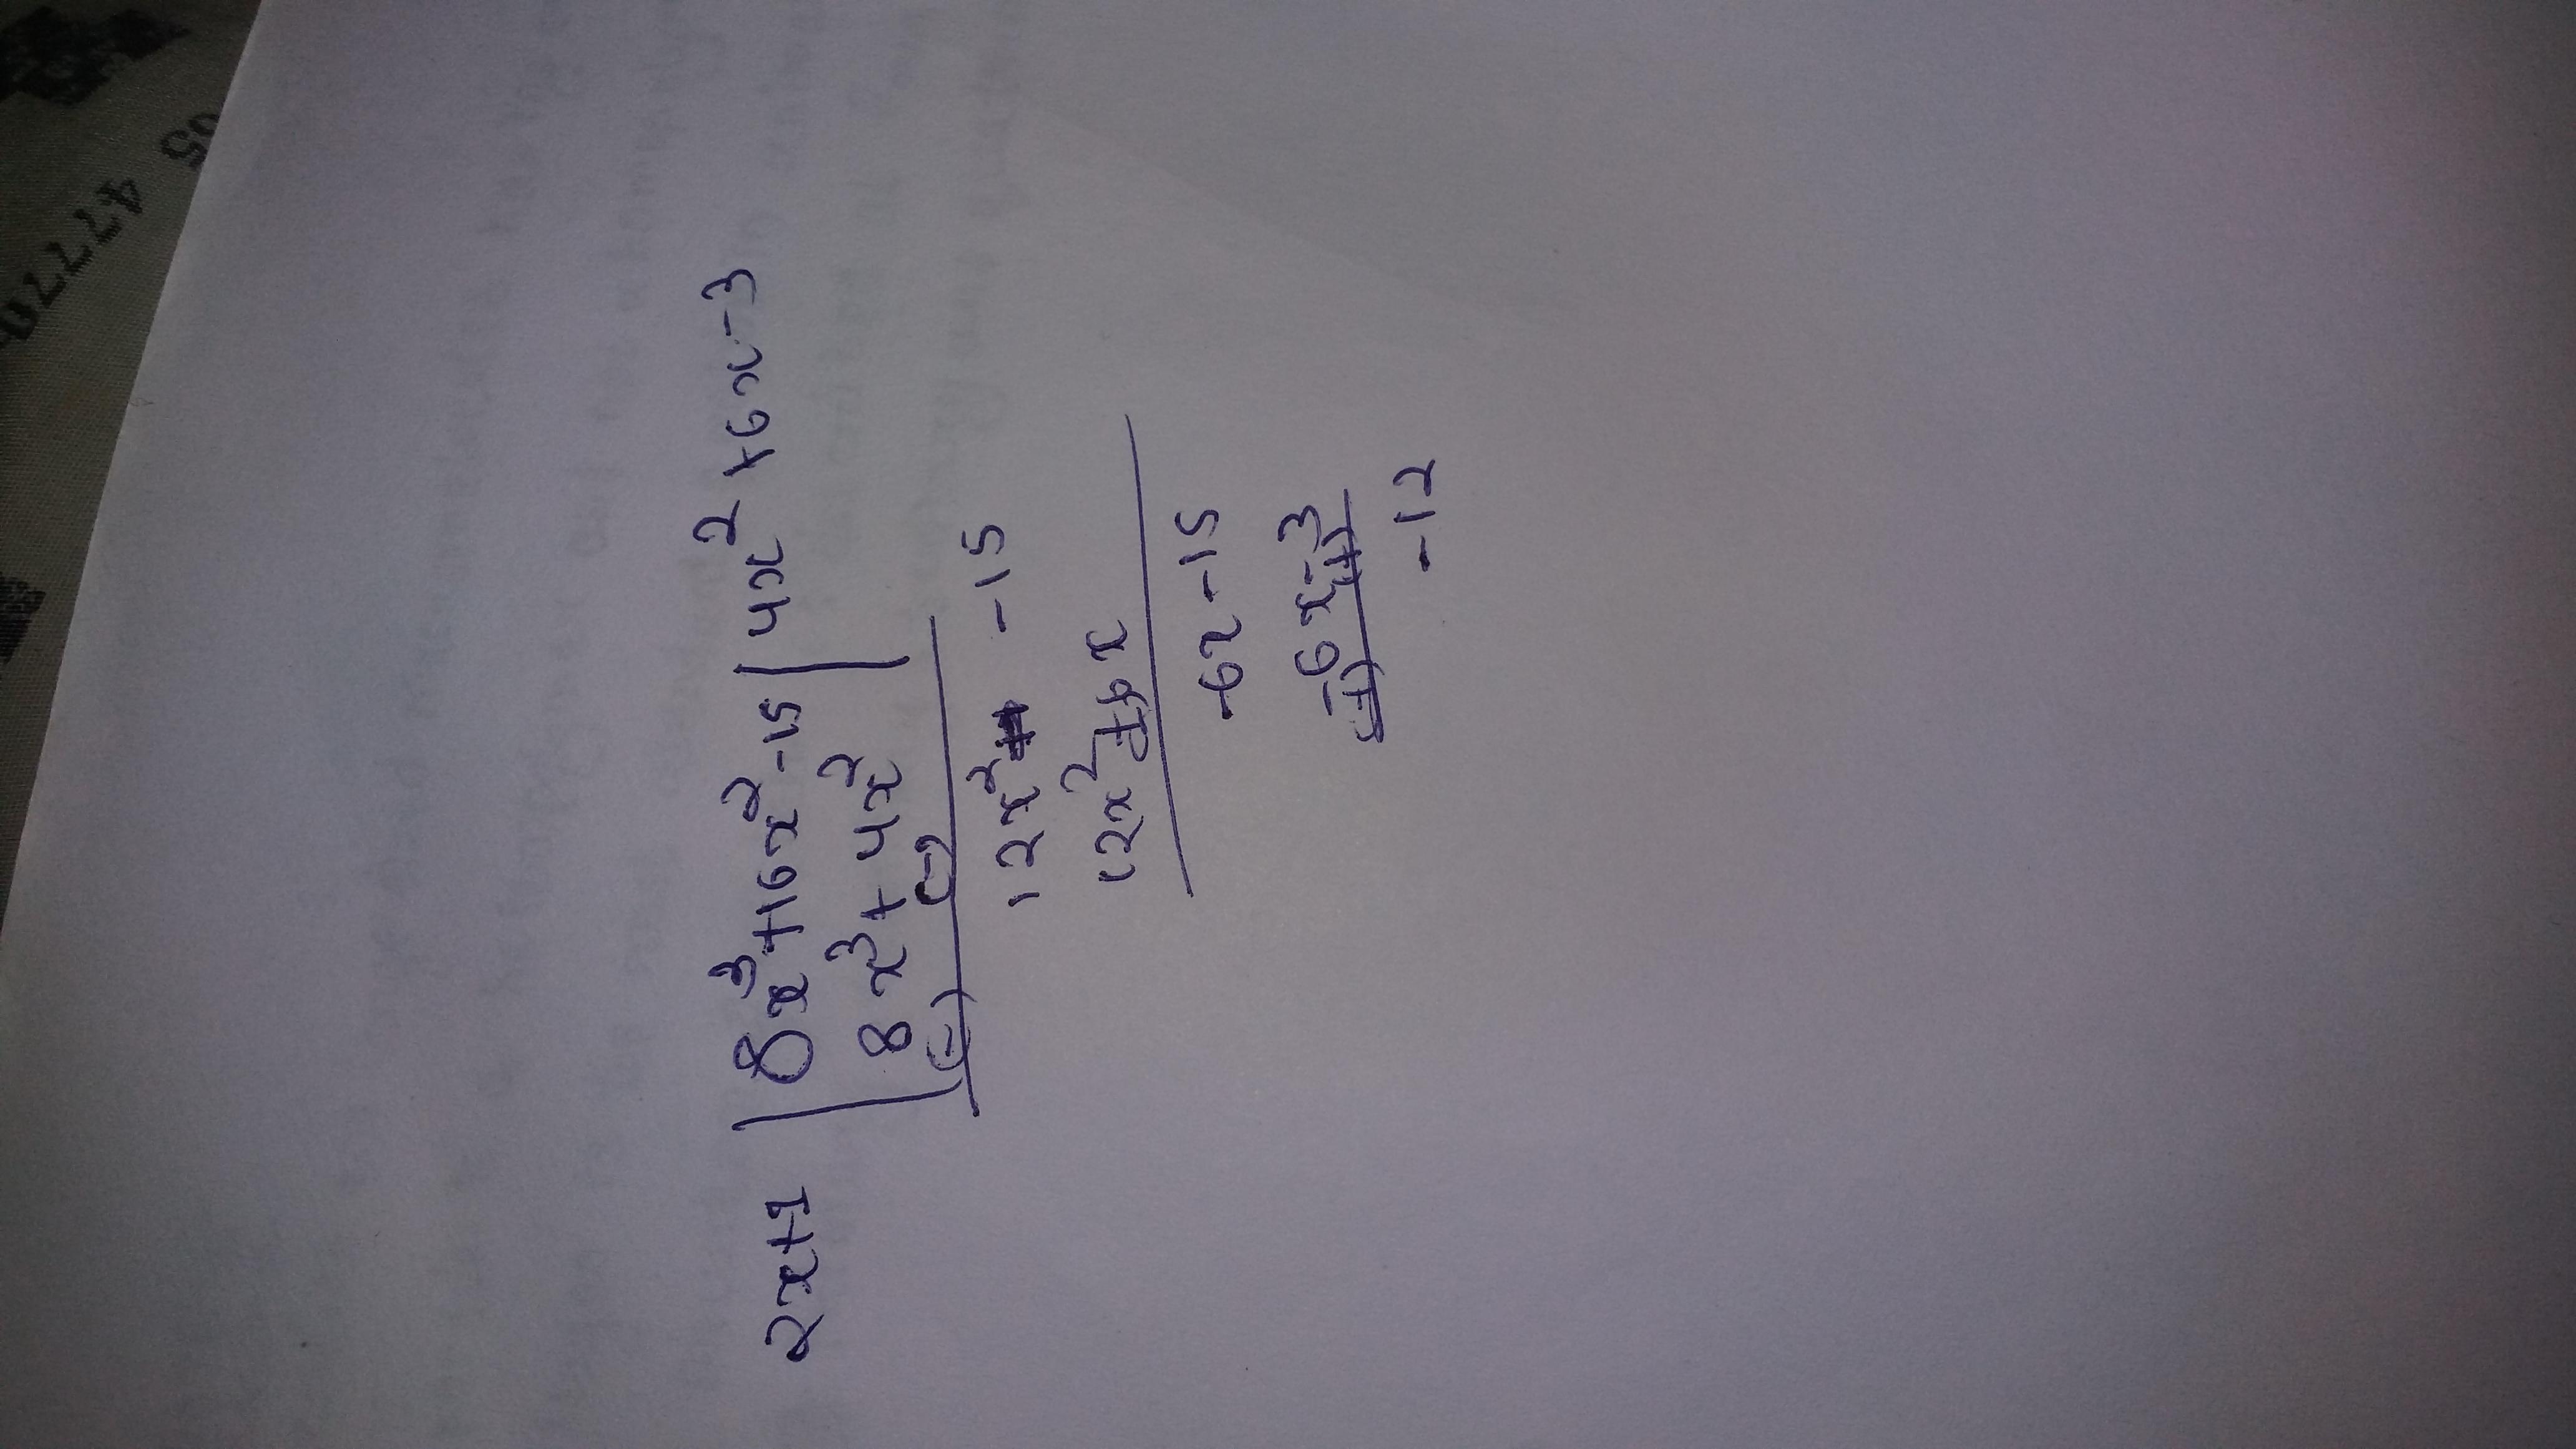 2x+1 | 8x³+16x²-15 | 4x²+6x-3
8x³+4x²
(-) (-)
12x² -15
12x² ± 6x
-6x-15
-6x-3
(+) (+)
-12